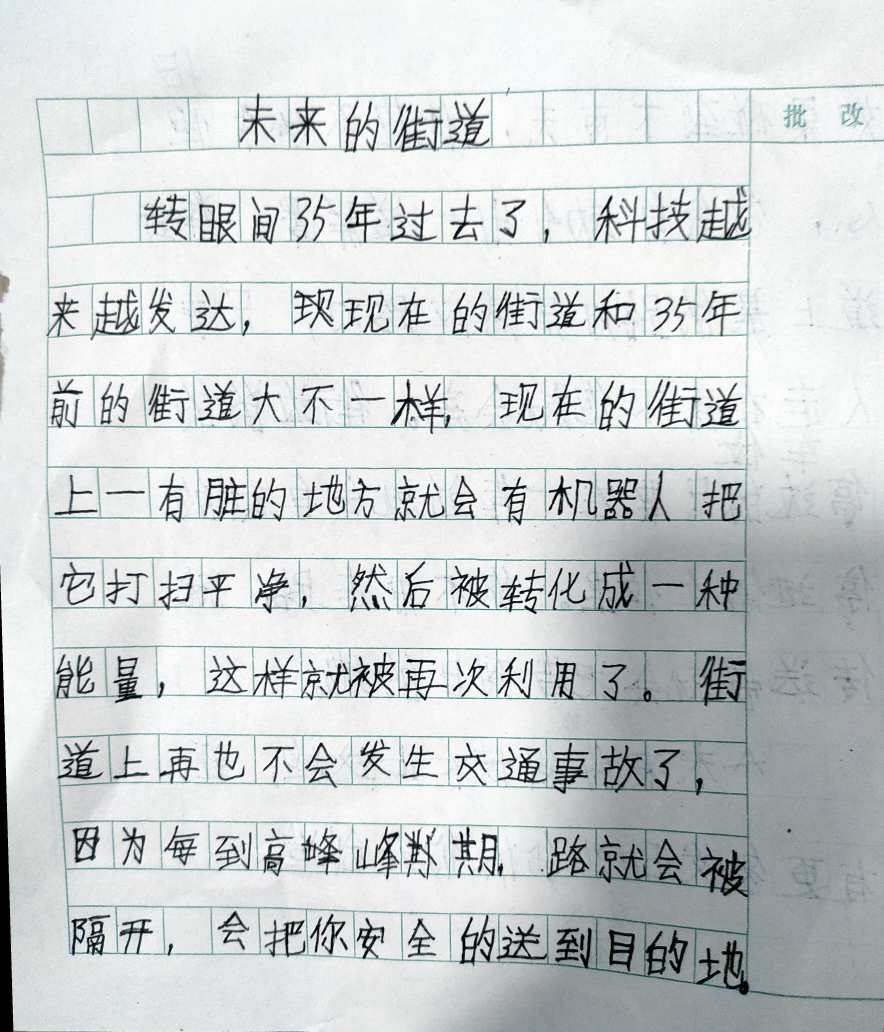 未来的街道
批改
转眼间35年过去了，科技越
来越发达，现现在的街道和35年
前的街道大不一样，现在的街道
上一有脏的地方就会有机器人把
它打扫平净，然后被转化成一种
能量，这样就被再次利用了。街
道上再也不会发生交通事故了，
因为每到高峰峰期，路就会被
隔开，会把你安全的送到目的地。